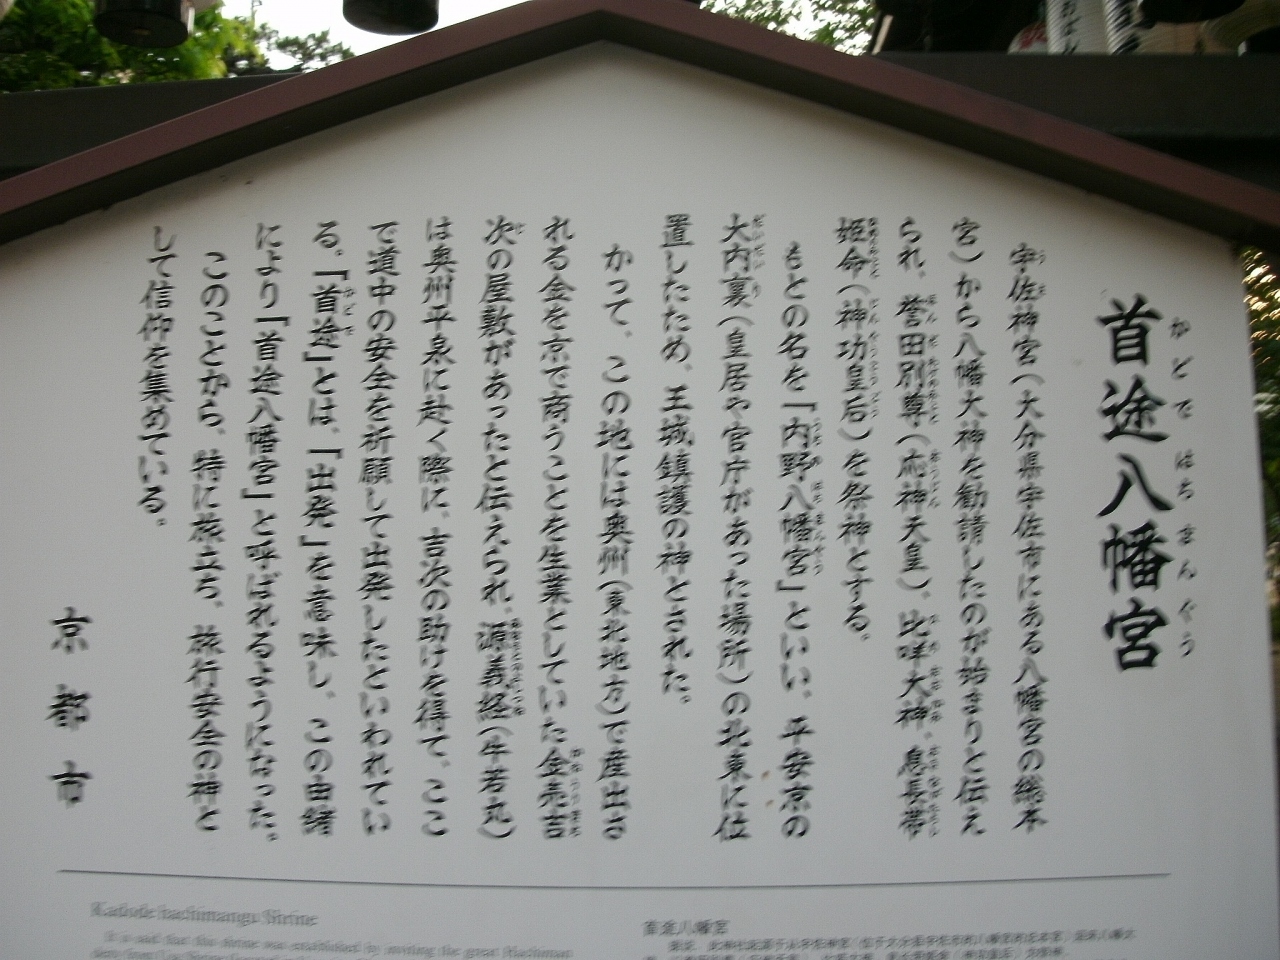 首途八幡宮
かどではちまんぐう
宇佐神宮（大分県宇佐市にある八幡宮の総本
宮）から八幡大神を勧請したのが始まりと伝え
られ、誉田別尊（応神天皇）、比咩大神、息長帯
姫命（神功皇后）を祭神とする。
もとの名を「内野八幡宮」といい、平安京の
大内裏（皇居や官庁があった場所）の北東に位
置したため、王城鎮護の神とされた。
かって、この地には奥州（東北地方）で産出さ
れる金を京で商うことを生業としていた金売吉
次の屋敷があったと伝えられ、源義経（牛若丸）
は奥州平泉に赴く際に、吉次の助けを得て、ここ
で道中の安全を祈願して出発したといわれてい
る。「首途」とは、「出発」を意味し、この由緒
により「首途八幡宮」と呼ばれるようになった。
このことから、特に旅立ち、旅行安全の神と
して信仰を集めている。
京都市
Kadode hachimangu Shrine
It is said that this shrine was established by inviting the great Hachiman
首途八幡宮